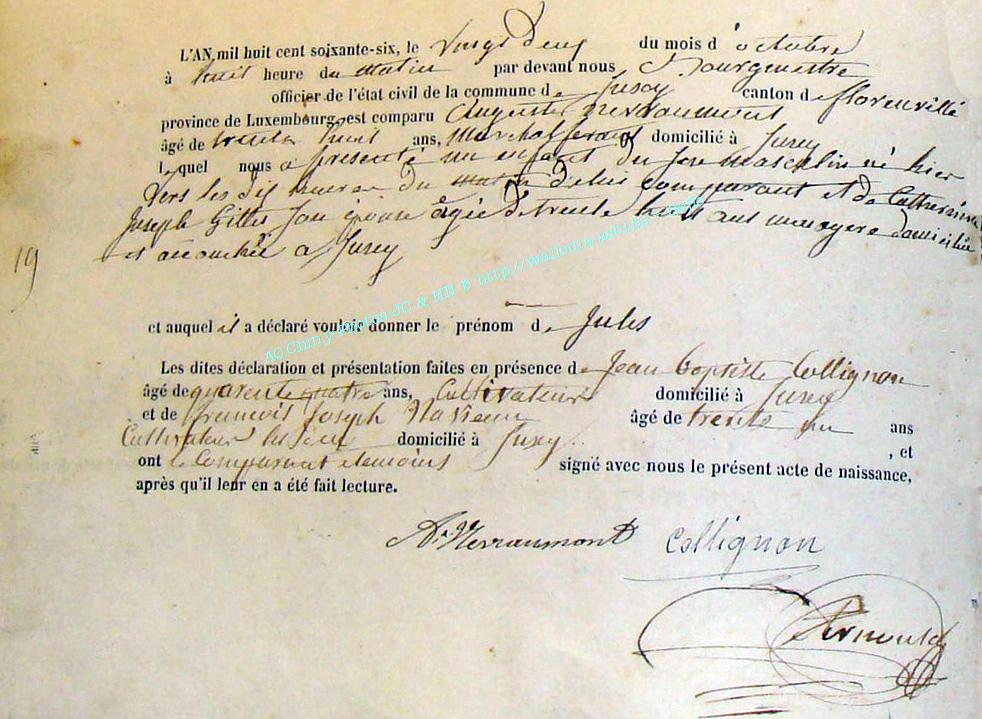 L'AN mil huit cent soixante-six, le vingt deux du mois d' octobre
à huit heure du matin par devant nous Bourgmestre
officier de l'état civil de la commune de Jusey canton de florenville
province de Luxembourg, est comparu Auguste Nerraumont
âgé de trente huit ans, Marchal ferant domicilié à Jusey
lequel nous a présenté un enfant du sexe masculin né hier
vers les dix heures du matin de lui comparant et de Catherinne
Joseph Gilles son épouse âgée de trente huit ans menagere domiciliée
et accouchée a Jusey
19
et auquel il a déclaré vouloir donner le prénom de Jules
Les dites déclaration et présentation faites en présence de Jean Baptiste Collignon
âgé de quarente quatre ans, Cultivateur domicilié à Jusey
et de francois Joseph âgé de trente un ans
Cultivateur domicilié à Jusey , et
ont le Comparant temoins signé avec nous le présent acte de naissance,
après qu'il leur en a été fait lecture.
Ate Nerraumont Collignon
AC Chiny-Aleton JC & HB © http://wallonia-